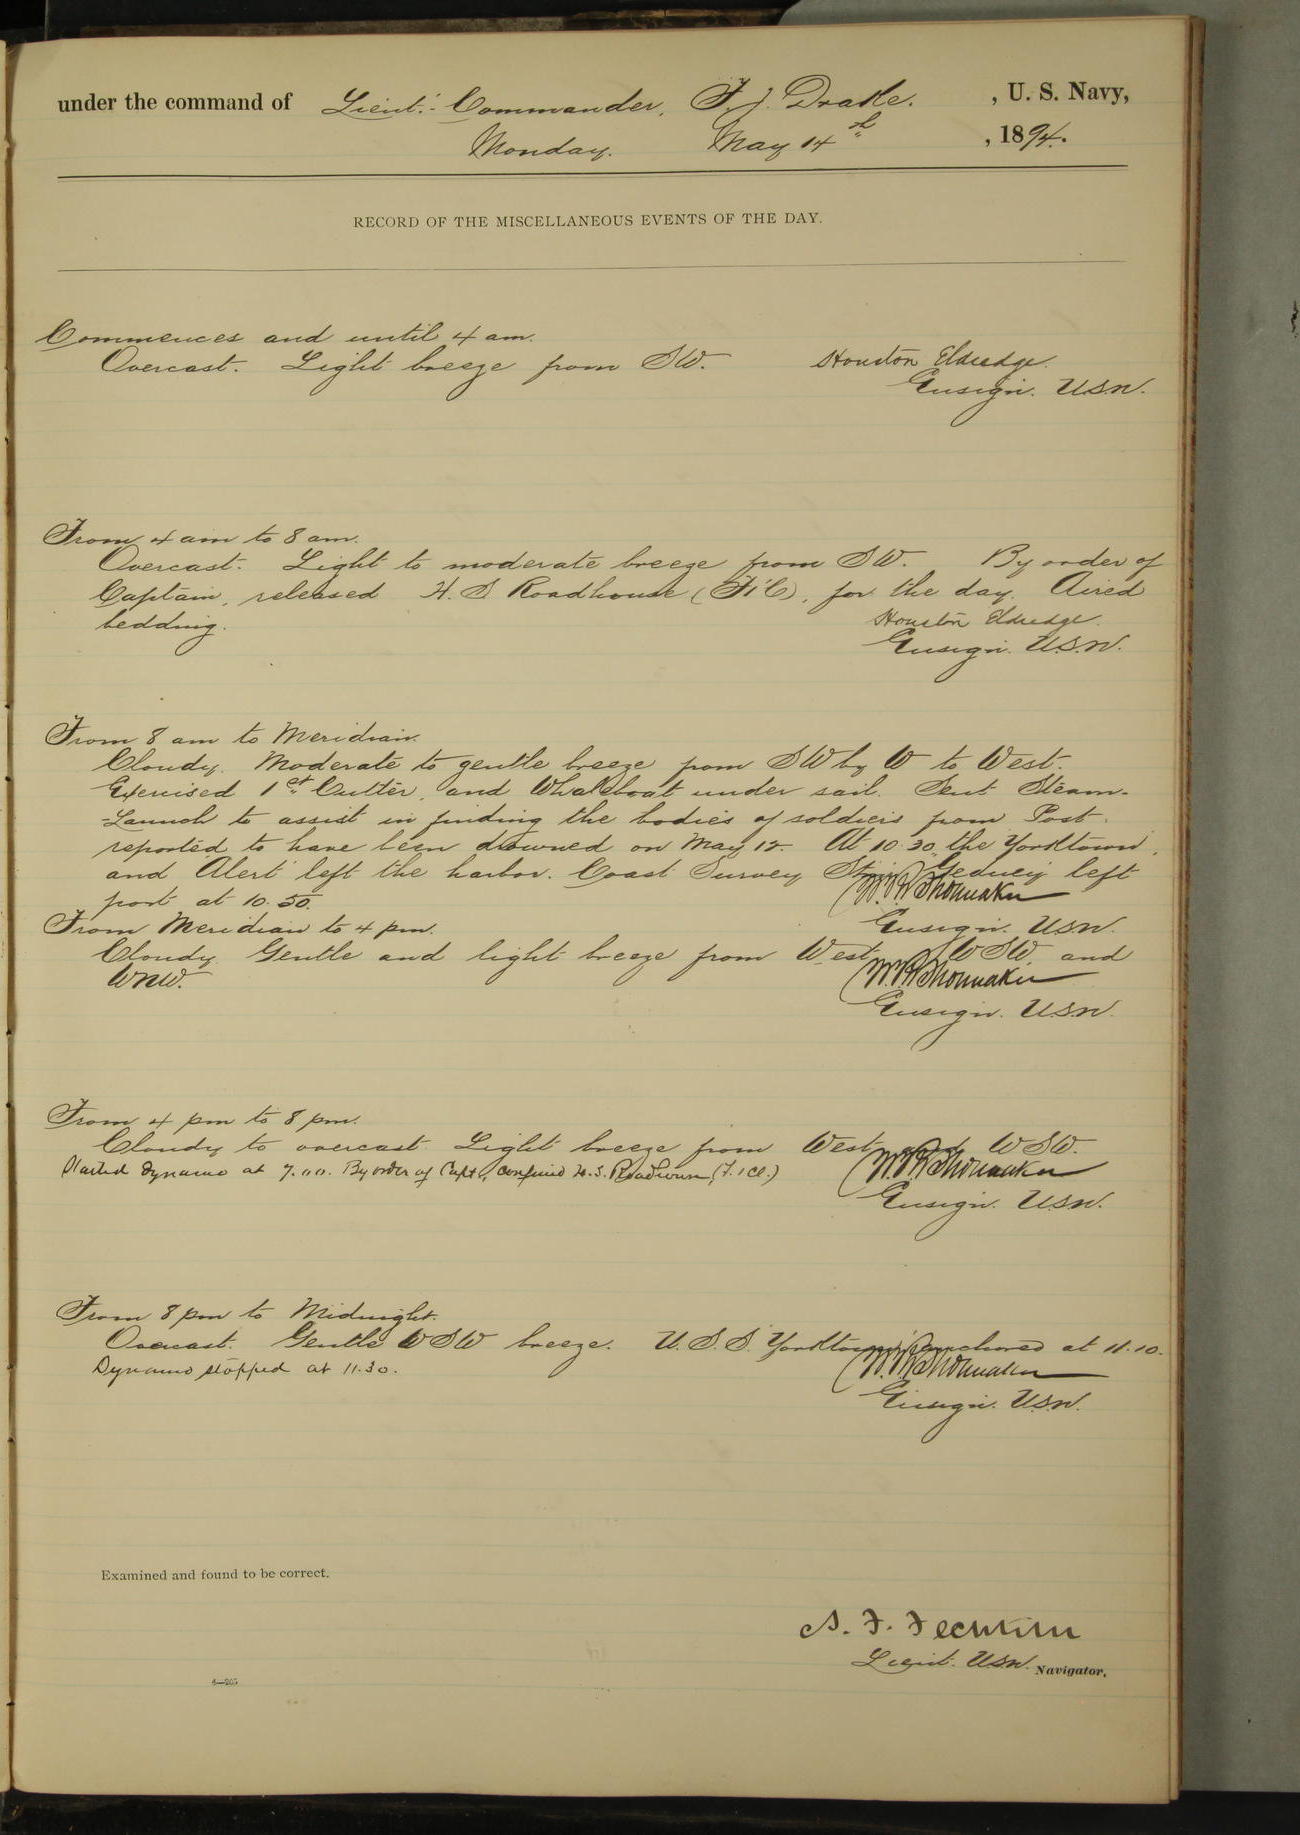 under the command of Lieut.- Commander, F. J. Drake. , U. S. Navy,
Monday. May 14th , 1894.
RECORD OF THE MISCELLANEOUS EVENTS OF THE DAY.
Commences and until 4 am.
Overcast. Light breeze from SW. Houston Eldredge.
Ensign. U.S.N.
From 4 am to 8 am.
Overcast. Light to moderate breeze from SW. By order of
Captain, released H. S. Roadhouse (F1C), for the day. Aired
bedding. Houston Eldredge.
Ensign. U.S.N.
From 8 am to Meridian.
Cloudy. Moderate to gentle breeze from SW by W to West.
Exercised 1st Cutter, and Whaleboat under sail. Sent Steam-
-Launch to assist in finding the bodies of soldiers from Post
reported to have been drowned on May 12. At 10.30 the Yorktown,
and Alert left the harbor. Coast Survey Str. Gedney left
port at 10.50. W. R. Shoemaker
Ensign. U.S.N.
From Meridian to 4 pm.
Cloudy. Gentle and light breeze from West, WSW, and
WNW. W. R. Shoemaker
Ensign. U.S.N.
From 4 pm to 8 pm.
Cloudy to overcast. Light breeze from West and WSW.
Started dynamo at 7.00. By order of Capt., confined H. S. Roadhouse, (F. 1 Cl.) W. R. Shoemaker
Ensign. U.S.N.
From 8 pm to Midnight.
Overcast. Gentle WSW breeze. U.S.S. Yorktown anchored at 11.10.
Dynamo stopped at 11.30. W. R. Shoemaker
Ensign. U.S.N.
Examined and found to be correct.
A. F. Fechteler
Lieut. U.S.N. Navigator.
6—205